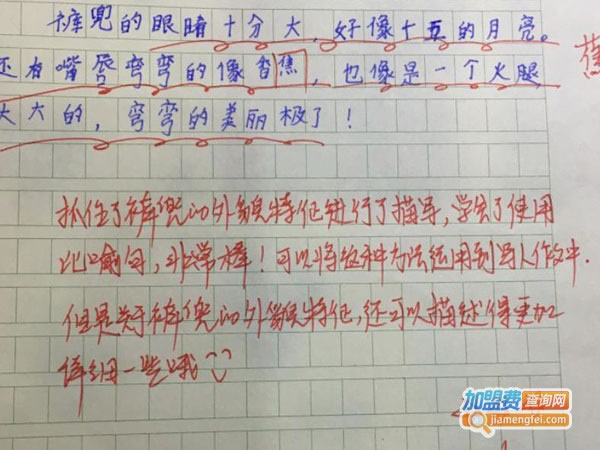 裤兜的眼睛十分大,好像十五的月亮。
还有嘴唇弯弯的像香蕉,也像是一个火腿,
大大的,弯弯的美丽极了!
蕉
抓住了裤兜的外貌特征进行了描写,学会了使用
比喻句,非常棒!可以将这种方法运用到写人作文中.
但是关于裤兜的外貌特征,还可以描述得更加
详细一些哦
加盟费查询网
jiamengfei.com